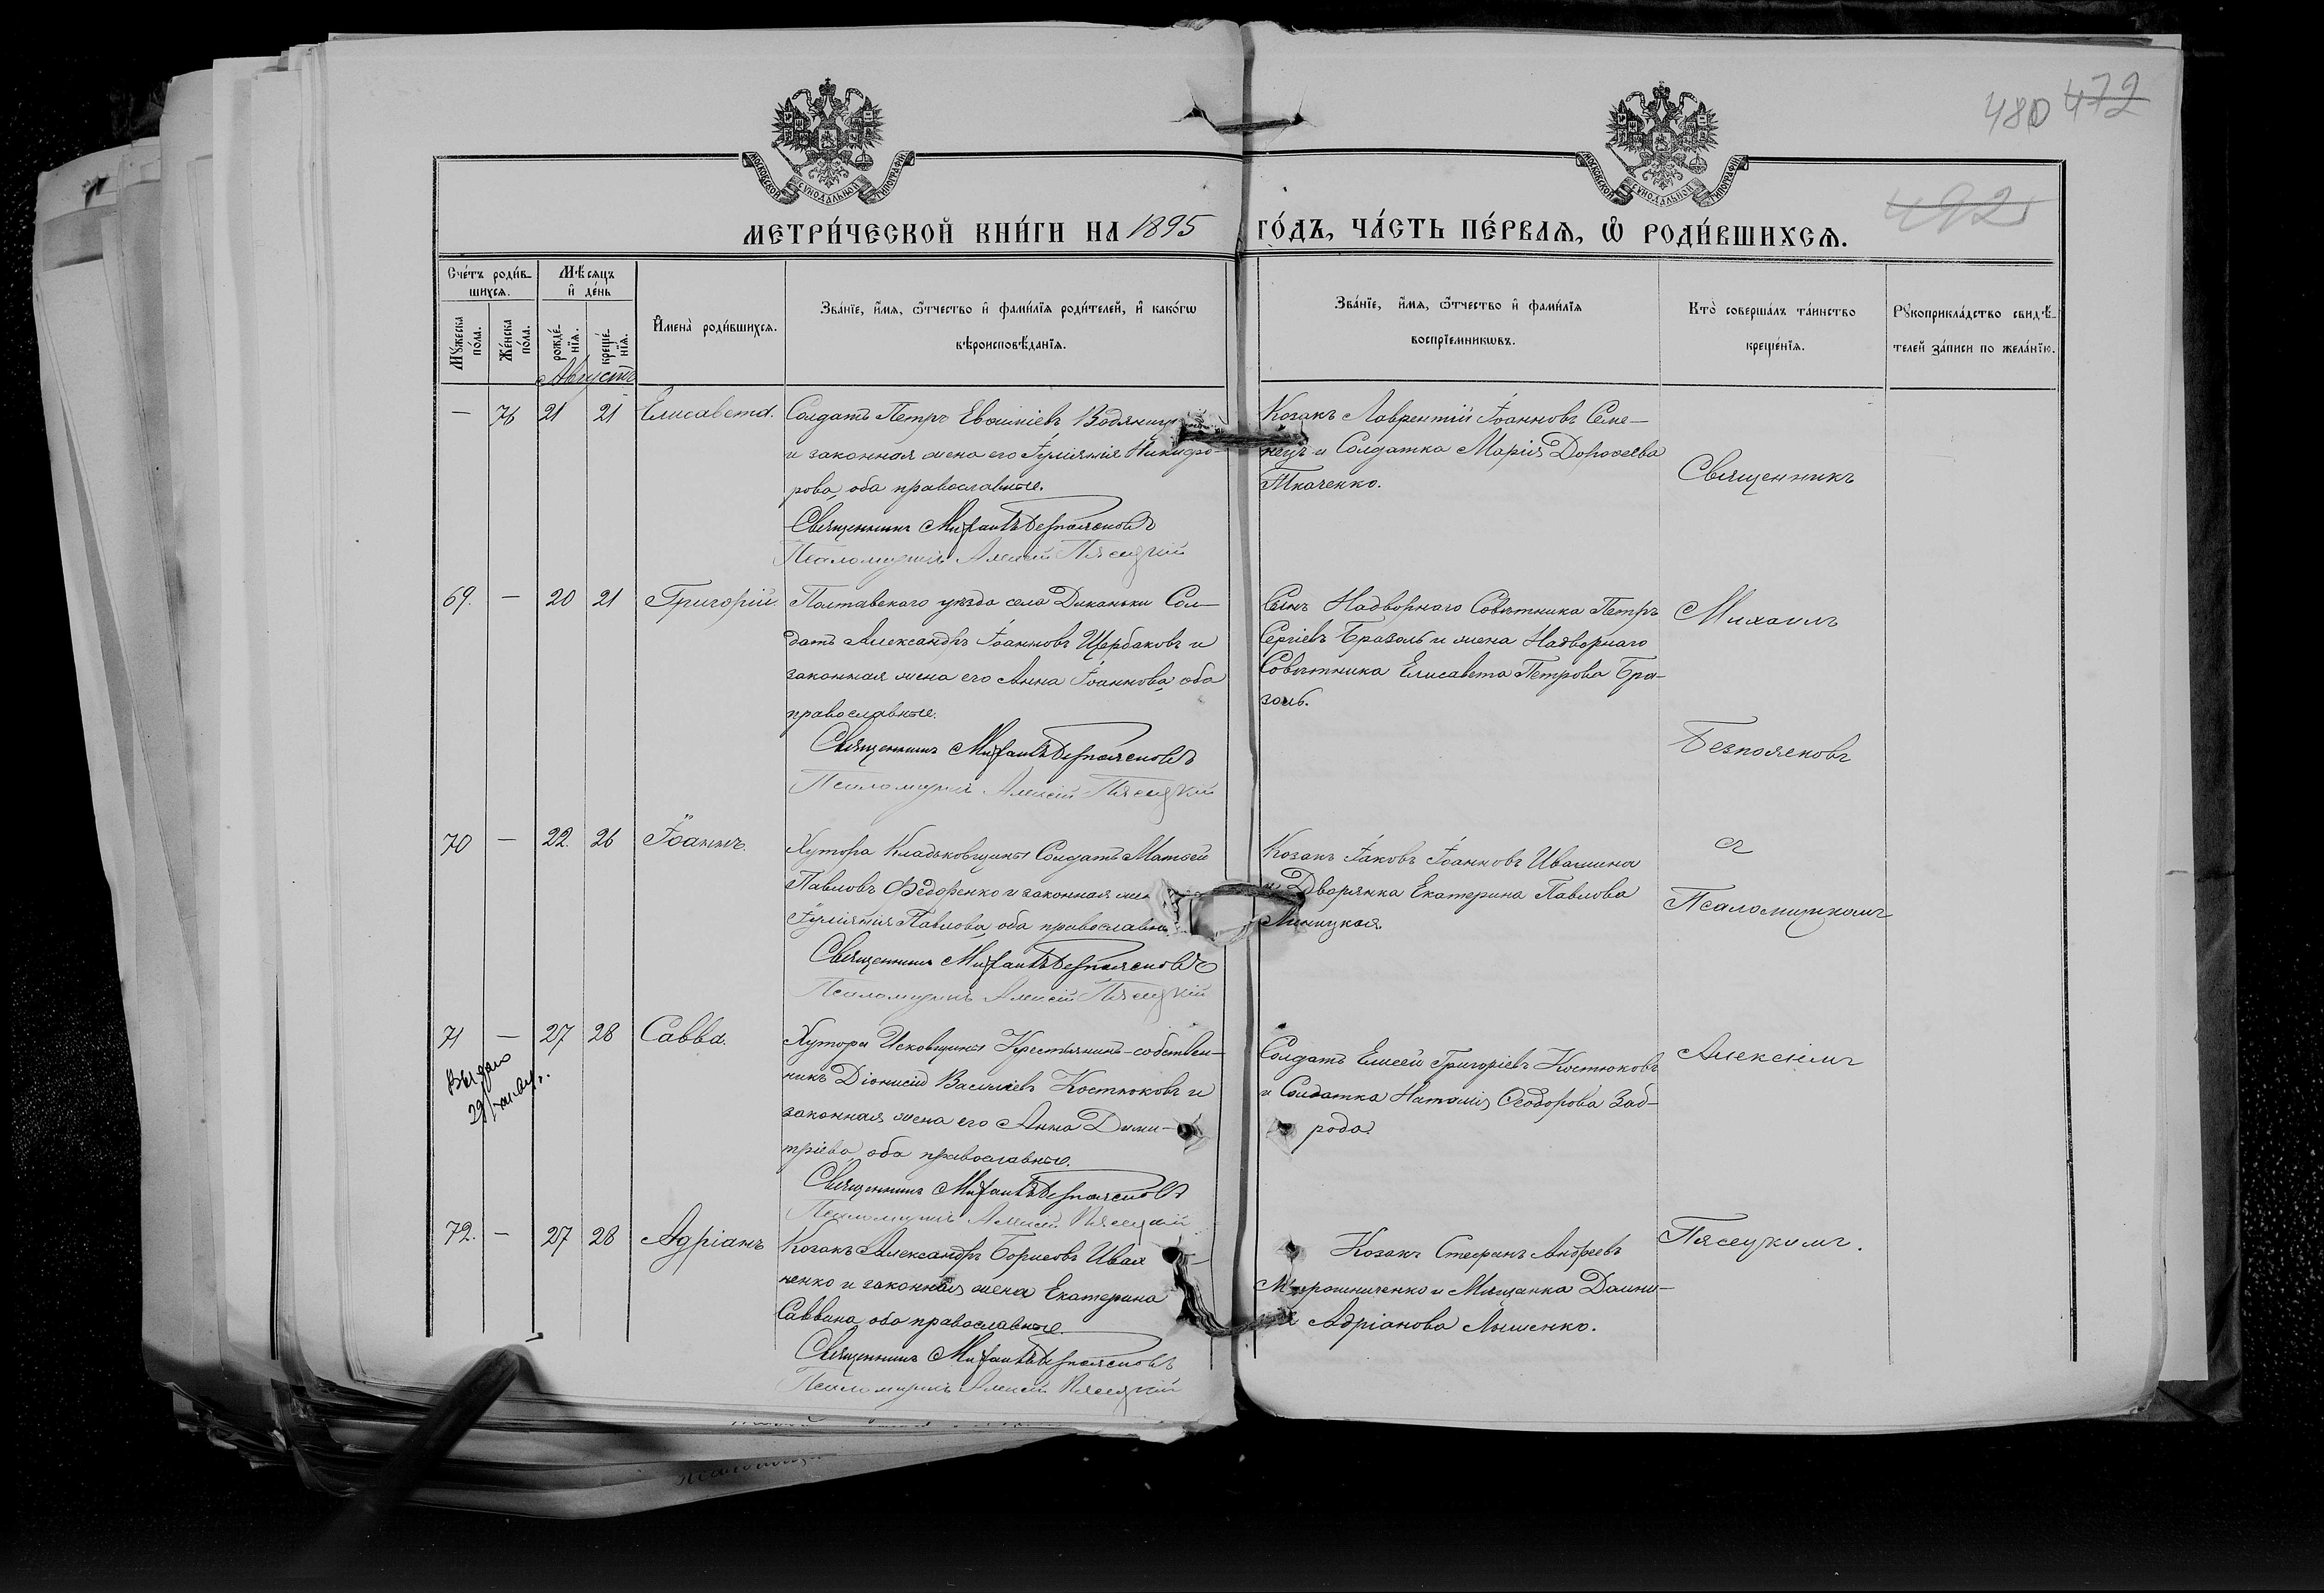 480 472
492
МОСКОВСКОЙ СѴНОДАЛЬНОЙ ТИПОГРАФІИ
МОСКОВСКОЙ СѴНОДАЛЬНОЙ ТИПОГРАФІИ
МЕТРИ́ЧЕСКОЙ КНИ́ГИ НА 1895 ГО́ДЪ, ЧА́СТЬ ПЕ́РВАѦ, Ѡ҆ РОДИ́ВШИХСѦ.
Сче́тъ роди́в-
шихсѧ.
Мꙋ́жеска
по́ла.
Же́нска
по́ла.
Мѣ́сѧцъ
и҆ де́нь
рожде́-
нїѧ.
креще́-
нїѧ.
Августъ
И҆мена̀ роди́вшихсѧ.
Зва́нїе, и҆́мѧ, ѻ҆́тчество и҆ фами́лїѧ роди́телей, и҆ како́гѡ
вѣроисповѣ́данїѧ.
Зва́нїе, и҆́мѧ, ѻ҆́тчество и҆ фами́лїѧ
воспрїе́мникѡвъ.
Кто̀ соверша́лъ та́инство
креще́нїѧ.
Рꙋкоприкла́дство свидѣ́-
телей за́писи по жела́нїю.
— 76 21 21 Елисавета.
Солдатъ Петръ Евѳиміевъ
и законная жена его Іуліянія Никифо-
рова, оба православные.
Священникъ Михаилъ Безпоясковъ
Псаломщикъ Алексій Пясецкій
Козакъ Лаврентій Іоанновъ Семе-
нецъ и Солдатка Марія Дороѳеева
Ткаченко.
69. — 20 21 Григорій.
Полтавскаго уѣзда села Диканьки Сол-
датъ Александръ Іоанновъ Щербаковъ и
законная жена его Анна Іоаннова, оба
православные.
Священникъ Михаилъ Безпоясковъ
Псаломщикъ Алексій Пясецкій
Сынъ Надворнаго Совѣтника Петръ
Сергіевъ Бразоль и жена Надворнаго
Совѣтника Елисавета Петрова Бра-
золь.
70 — 22. 26 Іоаннъ.
Хутора Кладьковщины Солдатъ Матѳей
Павловъ Ѳедоренко и законная
Іуліянія Павлова, оба
Священникъ Михаилъ Безпоясковъ
Псаломщикъ Алексій Пясецкій
Козакъ Іаковъ Іоанновъ Ивашина
и Дворянка Екатерина Павлова
71 — 27 28 Савва.
Выдано
29
Хутора Исковщины Крестьянинъ-собствен-
никъ Діонисій Василіевъ Костюковъ и
законная жена его Анна Дими-
тріева, оба православные.
Священникъ Михаилъ Безпоясковъ
Псаломщикъ Алексій Пясецкій
Солдатъ Елисей Григоріевъ Костюковъ
и Солдатка Наталія Ѳеодорова Зад-
рода.
72. — 27 28 Адріанъ
Козакъ Александръ Борисовъ
ненко и законная жена Екатерина
Саввина, оба православные.
Священникъ Михаилъ Безпоясковъ
Псаломщикъ Алексій Пясецкій
Козакъ Стефанъ Андреевъ
Мірошниченко и Мѣщанка
Адріанова
Священникъ
Михаилъ
Безпоясковъ
съ
Псаломщикомъ
Алексіемъ
Пясецкимъ.